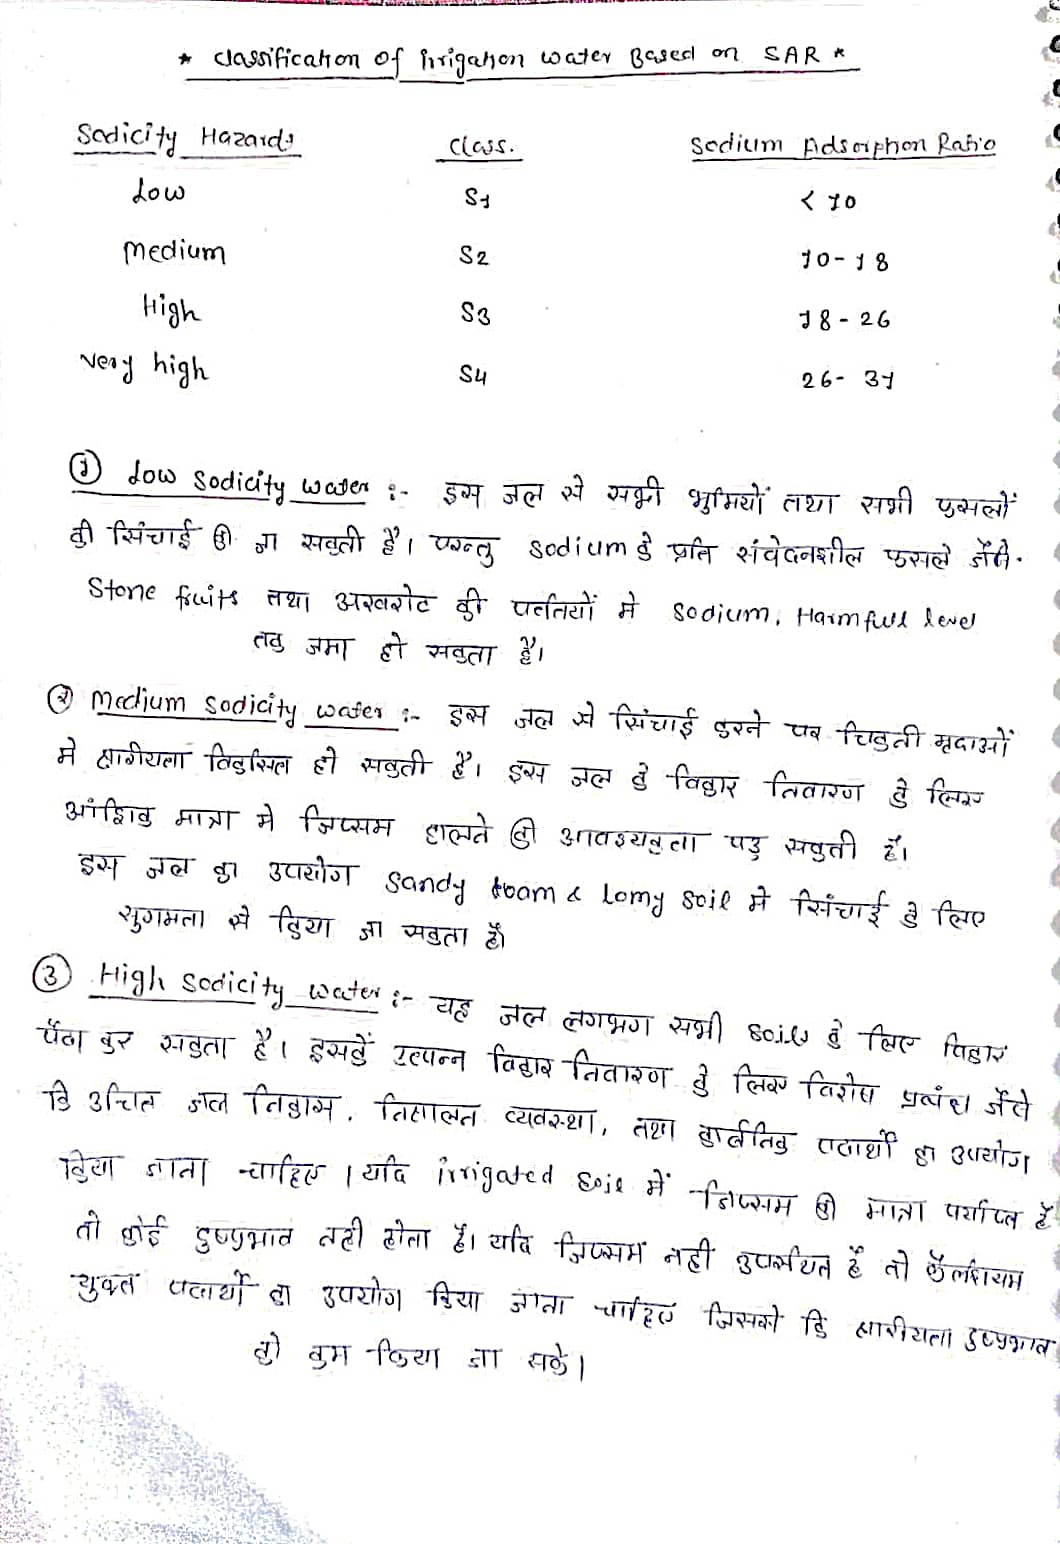 * Classification of Irrigation water Based on SAR *
Sodicity Hazards Class. Sodium Adsorption Ratio
Low S1 < 10
Medium S2 10-18
High S3 18-26
very high S4 26-31
① Low Sodicity water :- इस जल से सभी भुमियों तथा सभी फसलों
की सिंचाई की जा सकती है। परन्तु Sodium के प्रति संवेदनशील फसले जैसे-
Stone fruits तथा अखरोट की पत्तियों मे Sodium, Harmfull level
तक जमा हो सकता है।
② Medium Sodicity water :- इस जल से सिंचाई करने पर चिकनी मृदाओं
मे क्षारीयता विकसित हो सकती है। इस जल के विकार निवारण के लिए
आंशिक मात्रा मे जिप्सम डालने की आवश्यकता पड़ सकती है।
इस जल का उपयोग Sandy loam & Lomy Soil मे सिंचाई के लिए
सुगमता से किया जा सकता है।
③ High Sodicity water :- यह जल लगभग सभी Soils के लिए विकार
पैदा कर सकता है। इसके उत्पन्न विकार निवारण के लिए विशेष प्रबंध जैसे
कि उचित जल निकास, निक्षालन व्यवस्था, तथा कार्बनिक पदार्थो का उपयोग
किया जाना चाहिए। यदि irrigated Soil में जिप्सम की मात्रा पर्याप्त है
तो कोई दुष्प्रभाव नही होता है। यदि जिप्सम नही उपस्थित है तो कैल्शियम
युक्त पदार्थो का उपयोग किया जाना चाहिए जिससे कि क्षारीयता दुष्प्रभाव
को कम किया जा सके।